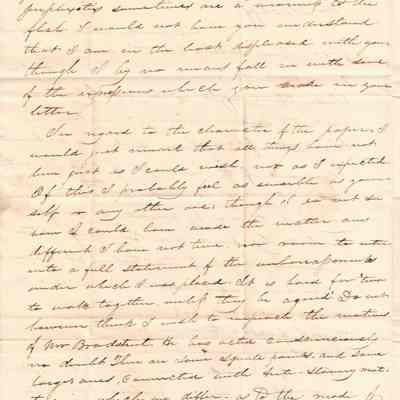 sometimes are a to the
flesh I would not have you understand
that I am in the least displeased with you
though I by no means fall in with some
of the which you make in your
letter.
In regard to the character of the paper, I
would just remark that all things have not
been just as I could wish, nor as I expected
Of this I probably feel as sensible as your
self or any other one; though I do not see
how I could have made the matter any
different I have not time nor room to enter
into a full statement of the embarrassments
under which I was placed. It is hard for "two
to walk together unless they be agreed" Do not
however think I wish to impeach the motives
of Mr Bradstreet. He has acted conscienciously
no doubt. There are some points, and some
larger ones, connected with Anti-Slavery
which we differ. as to the mode of